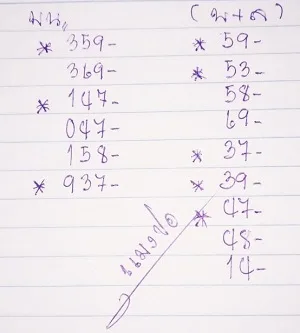 บน,,
* 359-
369-
* 147-
047-
158-
* 937-
(บ+ล)
* 59-
* 53-
58-
69-
* 37-
* 39-
* 47-
48-
14-